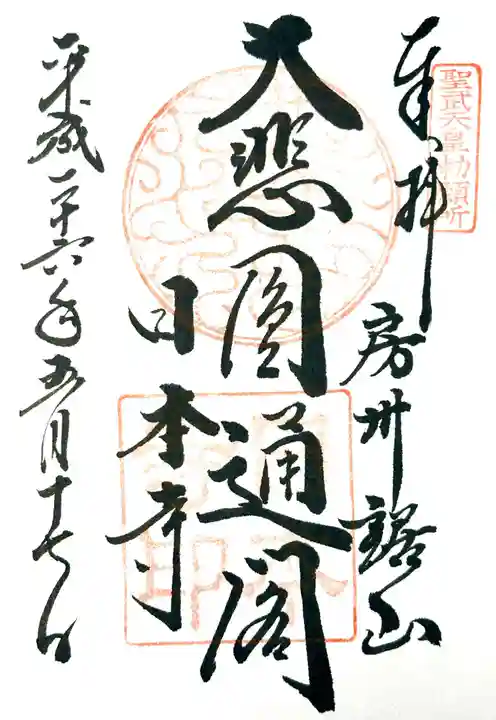 聖武天皇勅願所
奉拝
房州鋸山
大悲圓通閣
日本寺
平成二十六年五月十七日